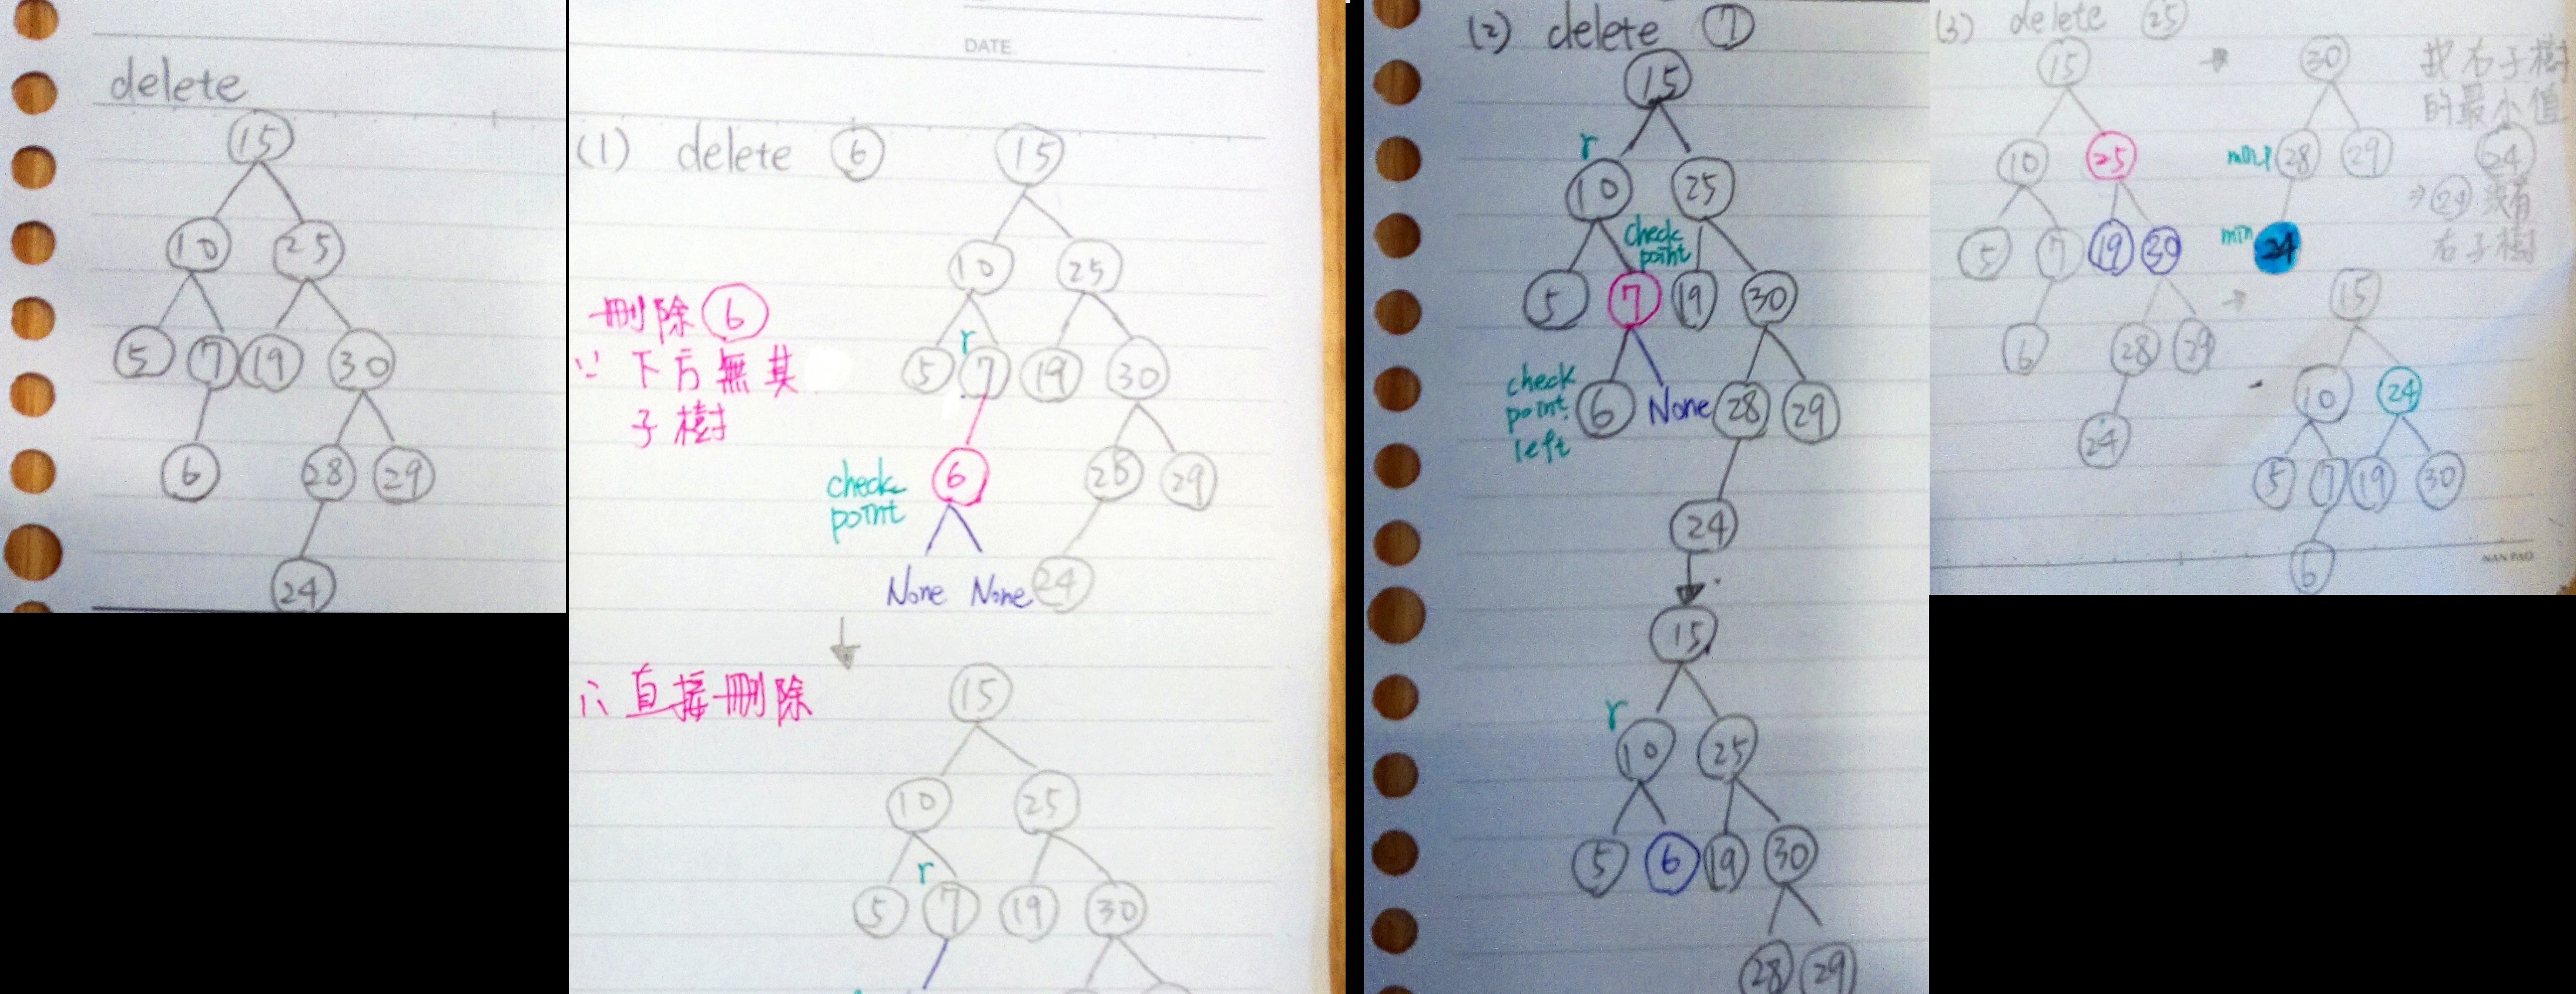 delete
15
10 25
5 7 19 30
6 28 29
24
DATE
(1) delete 6
15
10 25
刪除 6
∵ 下方無其
子樹
r
5 7 19 30
check
point
6 28 29
None None 24
∴ 直接刪除
15
10 25
r
5 7 19 30
(2) delete 7
15
r
10 25
check
point
5 7 19 30
check
point.
left
6 None 28 29
24
15
r
10 25
5 6 19 30
28 29
(3) delete 25
15
10 25
5 7 19 30
6 28 29
24
30
28 29
min 24
找右子樹
的最小值
24
⇒ 24 沒有
右子樹
15
10 24
5 7 19 30
6
NAN PAO